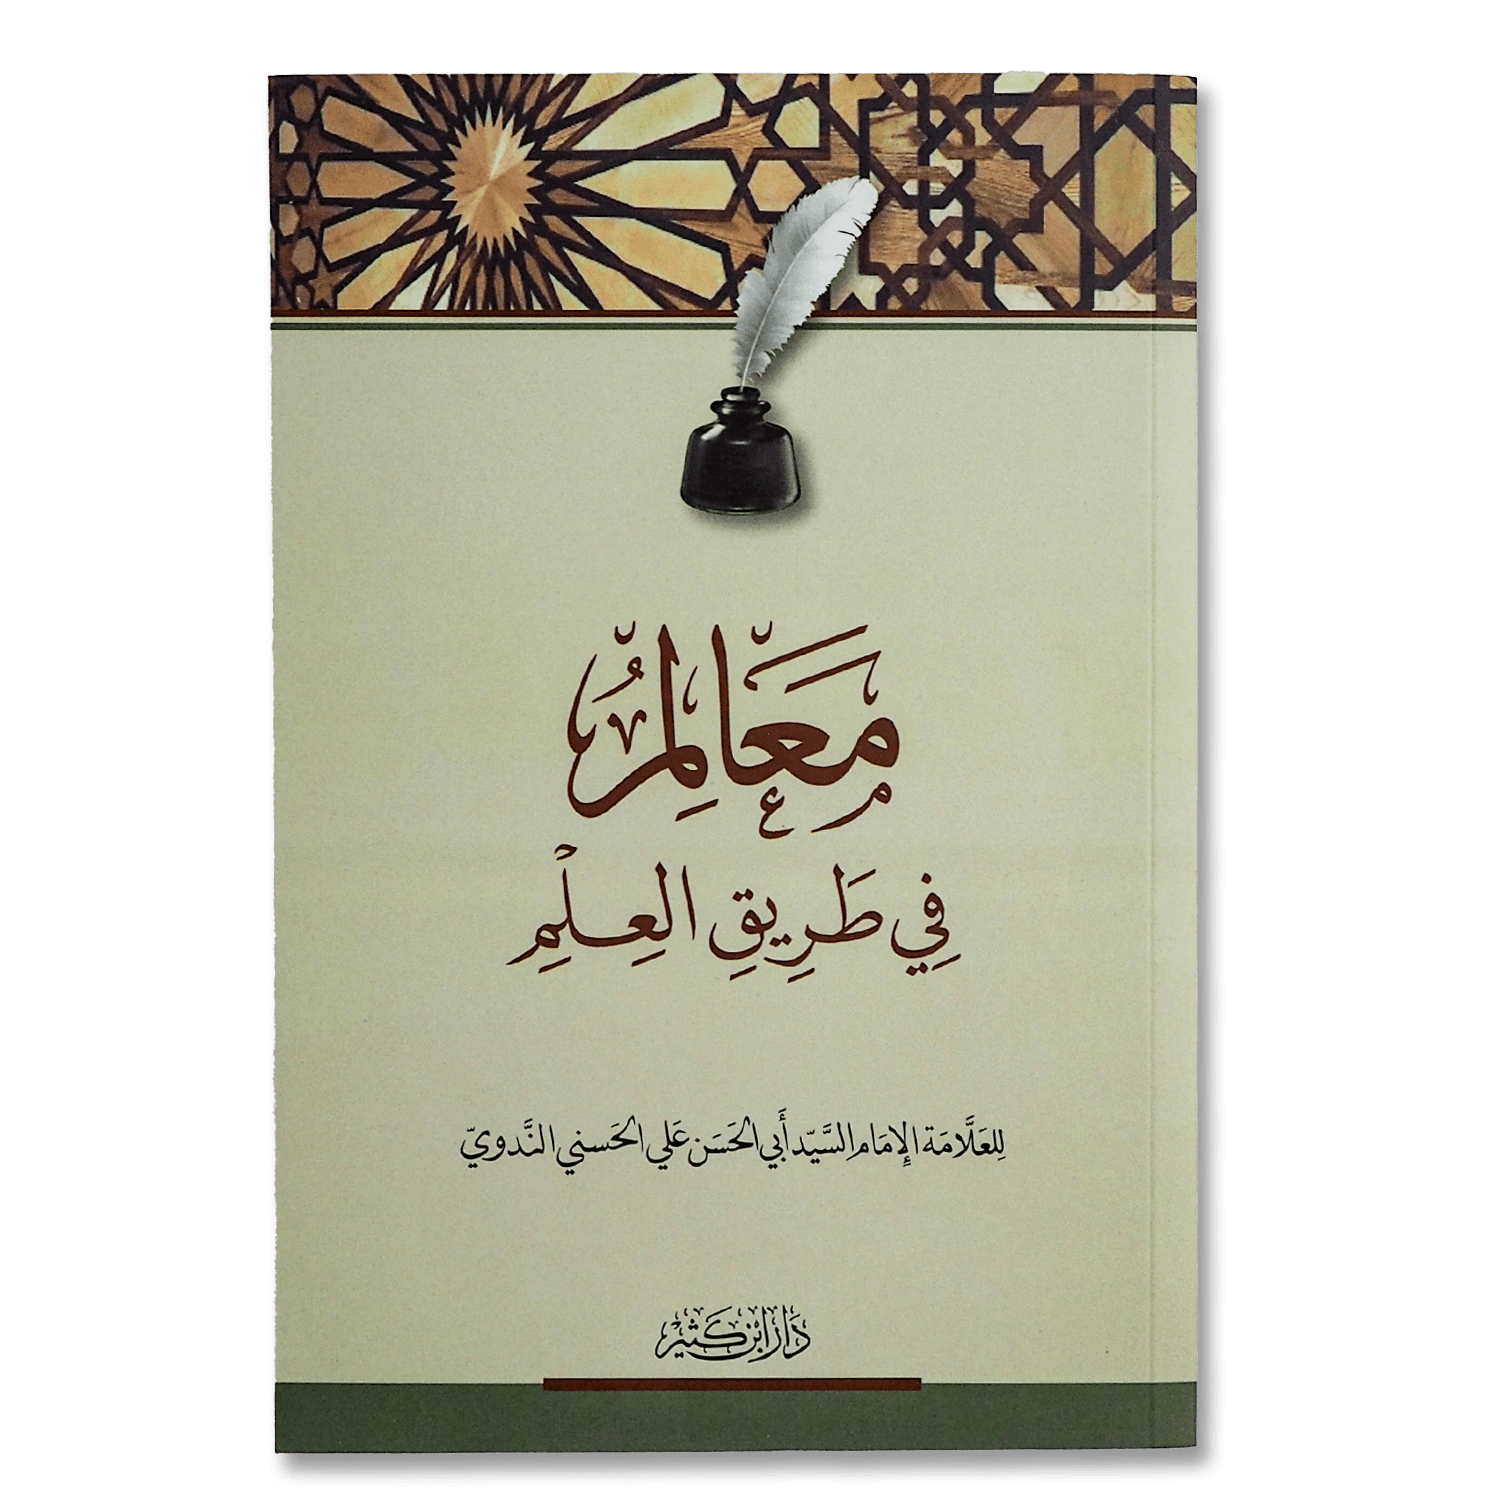 مَعَالِمُ
فِي طَرِيقِ العِلْمِ
لِلعَلَّامَة الإِمَام السَّيِّد أَبي الحَسَن عَلي الحَسني النَّدويّ
دَار ابْن كَثير